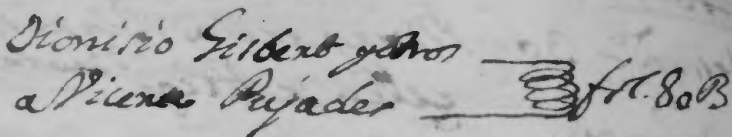 Dionisio Gisbert y otros
a Vicente Pujades fol. 80 B